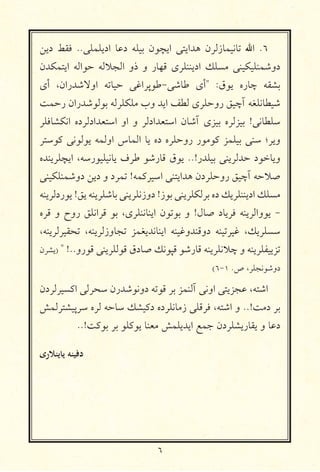 ٦. الله تانیمازلرن هدایتی ایچون بیله دعا ایدیلملی.. فقط دین
دوشمنلیکینی مسلك ادیننلری قهار و ذو الجلاله حواله ایتمکدن
بشقه چاره یوق: "أی طاشی-طوپراغی حیاته اولاشدران، أی
شیطانلغه آچیق روحلری لطف اید وب ملکلرله بولوشدران رحمت
سلطانی! بیزلره بیزی آشان استعدادلر و او استعدادلرده انکشافلر
ویر؛ سنی بیلمز کومور روحلره ده یا الماس اولمه یولونی کوستر
ویاخود حدلرینی بیلدر!.. یوق قارشو طرف یانیلیورسه، ایچلرینده
صلاحه آچیق روحلردن هدایتنی اسیرکمه! تمرد و دین دوشمنلکینی
مسلك ادیننلریك ده برلکلرینی بوز! دوزنلرینی باشلرینه یق! یوردلرینه
- یووالرینه فریاد صال! و بوتون ایناننلری، بو قرانلق روح و قره
سسلریك، غیرتینه دوقندوغینه ایناندیغمز تجاوزلرینه، تحقیرلرینه،
تزییفلرینه و چالانلرینه قارشو قپونك صادق قوللرینی قورو..!" (یشرن
دوشونجلر، ص. ١-٦)
اشته، عجزیتی اونی آلنمز بر قوته دونوشدرن سحرلی اکسیرلردن
بر دمت!.. و اشته، فرقلی زمانلرده دکیشك ساحه لره سرپیشترلمش
دعا و یقاریشلردن جمع ایدیلمش معنا یوکلو بر بوکت!..
دفینه یایینلاری
٦